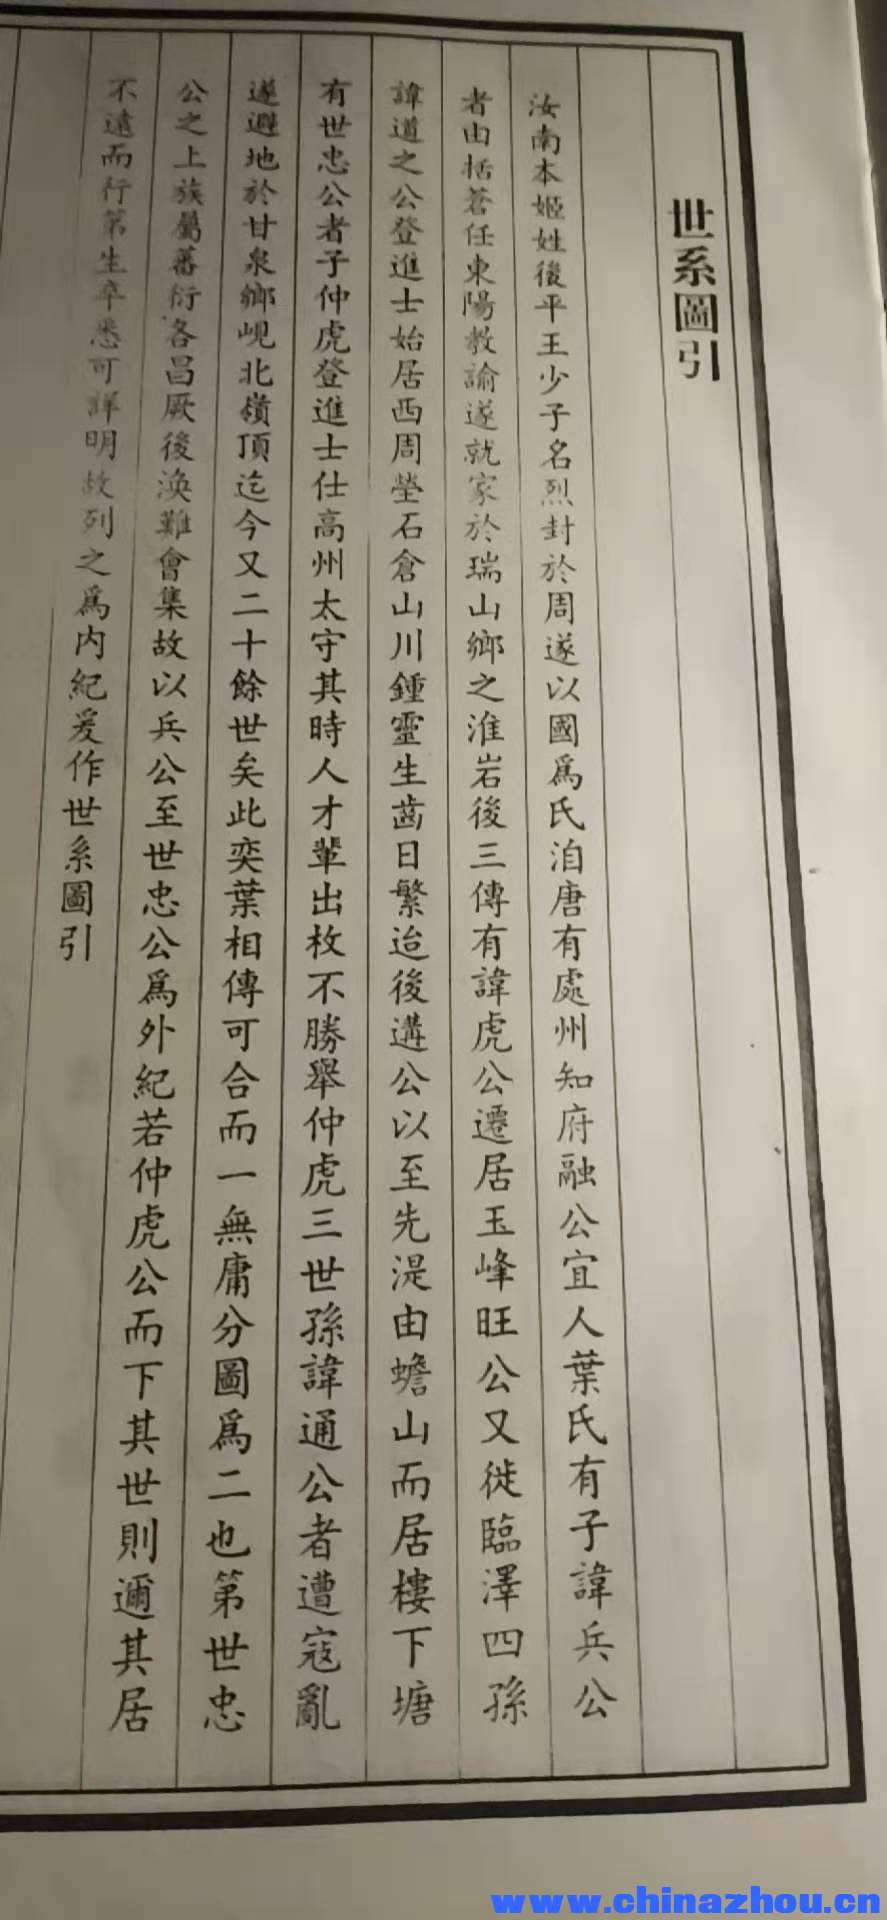 世系圖引
汝南本姬姓後平王少子名烈封於周遂以國爲氏洎唐有處州知府融公宜人葉氏有子諱兵公
者由括蒼任東陽教諭遂就家於瑞山鄉之淮岩後三傳有諱虎公遷居玉峰旺公又徙臨澤四孫
諱道之公登進士始居西周塋石倉山川鍾靈生齒日繁迨後溝公以至先湜由蟾山而居樓下塘
有世忠公者子仲虎登進士仕高州太守其時人才輩出枚不勝舉仲虎三世孫諱通公者遭寇亂
遂避地於甘泉鄉峴北嶺頂迄今又二十餘世矣此奕葉相傳可合而一無庸分圖爲二也第世忠
公之上族屬蕃衍各昌厥後渙難會集故以兵公至世忠公爲外紀若仲虎公而下其世則邇其居
不遠而行第生卒悉可詳明故列之爲內紀爰作世系圖引
www.chinazhou.cn